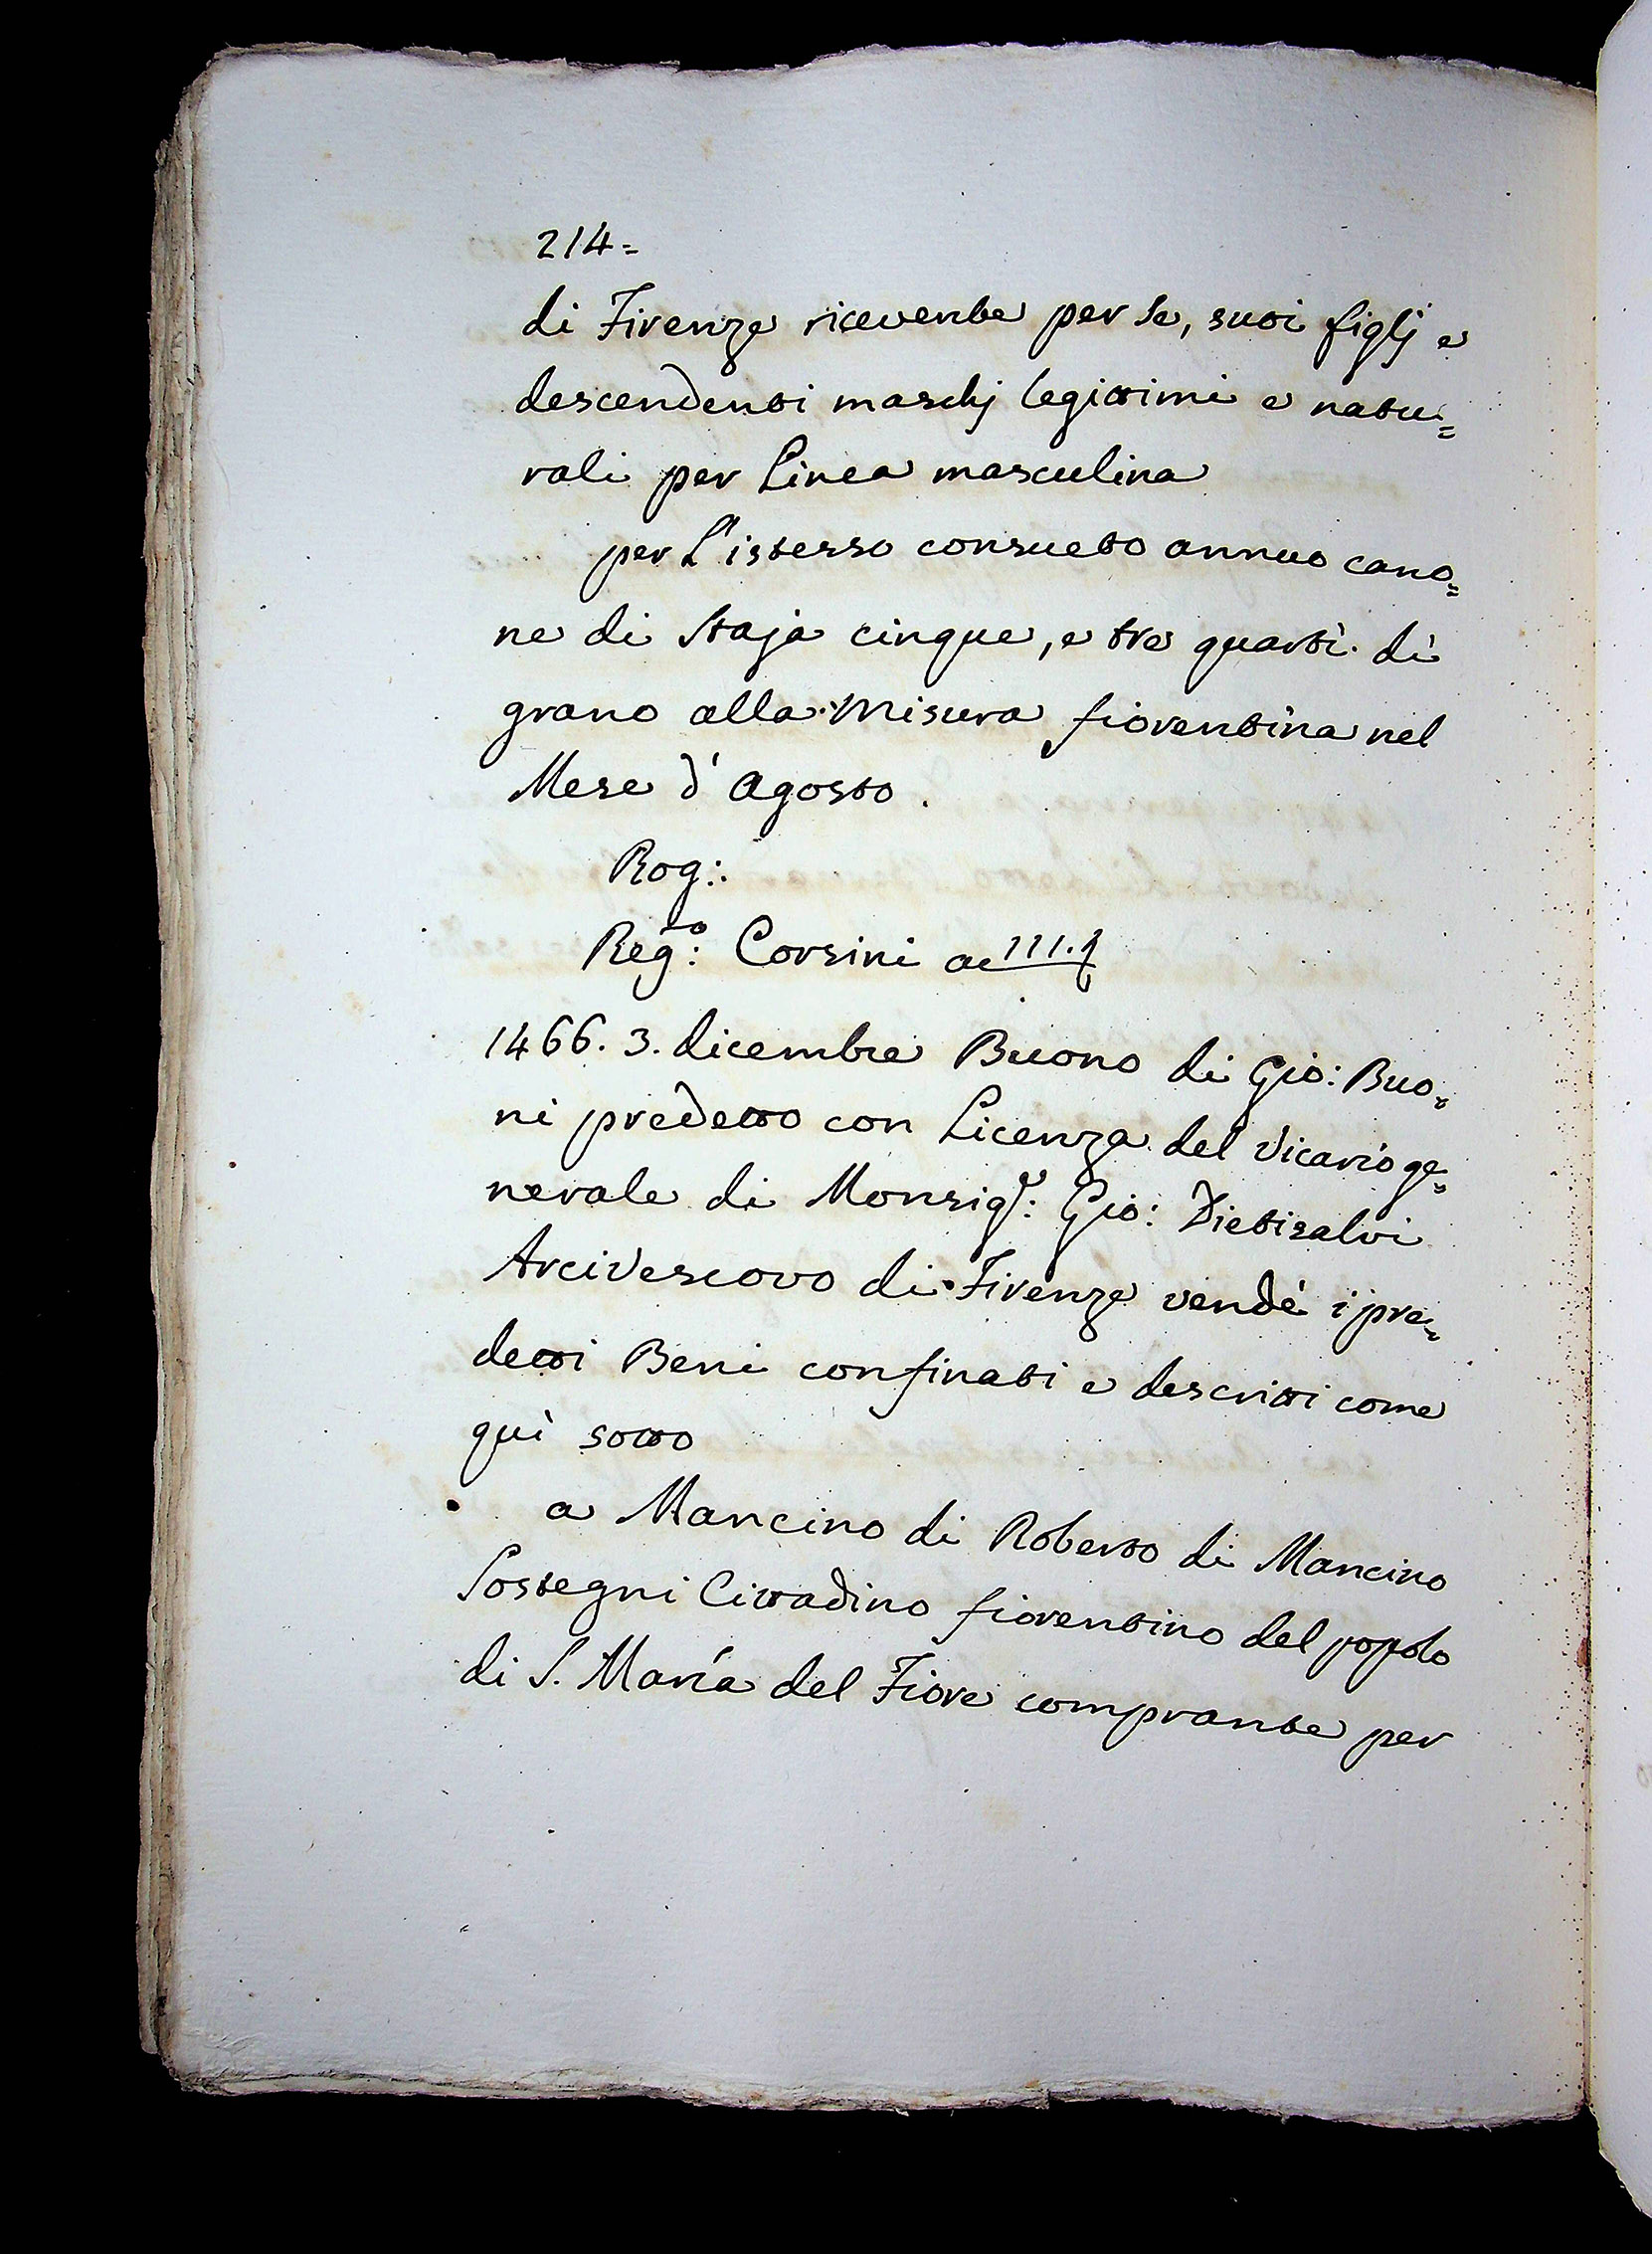 214=
di Firenze ricevente per se, suoi figlj e
descendenti maschj legittimi e natu=
rali per Linea masculina
per L'istesso consueto annuo cano=
ne di Staja cinque, e tre quarti di
grano alla Misura fiorentina nel
Mese d'Agosto.
Rog:.
Reg:º Corsini a
1466. 3. dicembre Buono di Gio: Buo=
ni predetto con Licenza del Vicario ge=
nerale di Monsig:e Gio: Dietisalvi
Arcivescovo di Firenze vendè i pre=
detti Beni confinati e descritti come
quì sotto
a Mancino di Roberto di Mancino
Sostegni Cittadino fiorentino del popolo
di S. Maria del Fiore comprante per